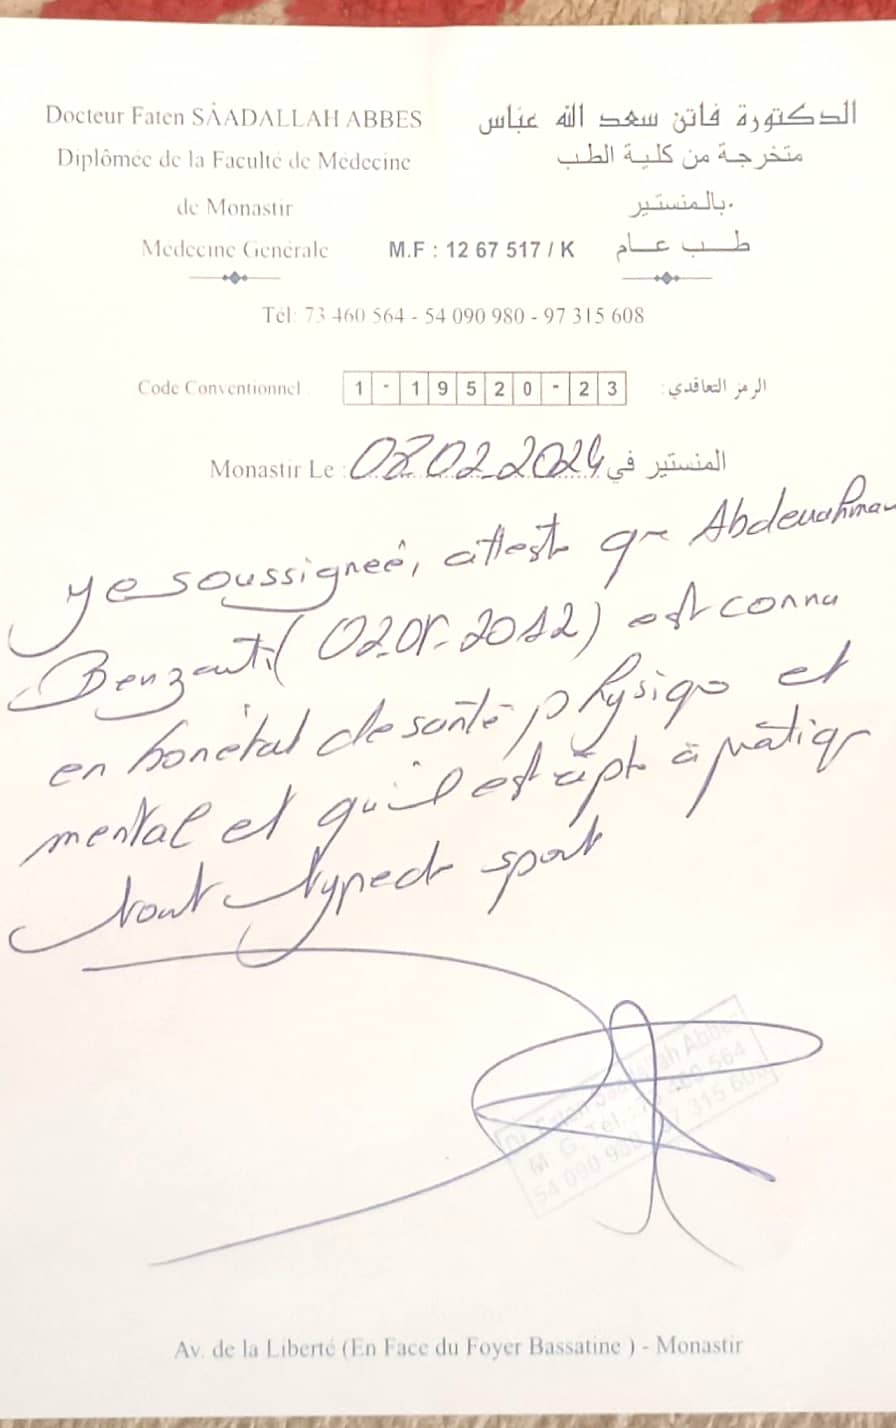 Docteur Faten SAADALLAH ABBES
الدكتورة فاتن سعد الله عباس
Diplômée de la Faculté de Médecine
متخرجة من كلية الطب
de Monastir
بالمنستير.
Médecine Générale
M.F : 12 67 517 / K
طب عام
Tél: 73 460 564 - 54 090 980 - 97 315 608
Code Conventionnel : 1 - 19520 - 23 الرمز التعاقدي:
Monastir Le : 08.02.2024 المنستير في
Je soussigneé, atteste que Abderrahman
Benzarti (02.05.2012) est connu
en bon état de santé physique et
mental et qu'il est apte à pratiquer
tout type de sport
Dr Faten Saadallah Abbes
M. G. Tél. : 73 460 564
54 090 980 97 315 608
Av. de la Liberté (En Face du Foyer Bassatine ) - Monastir